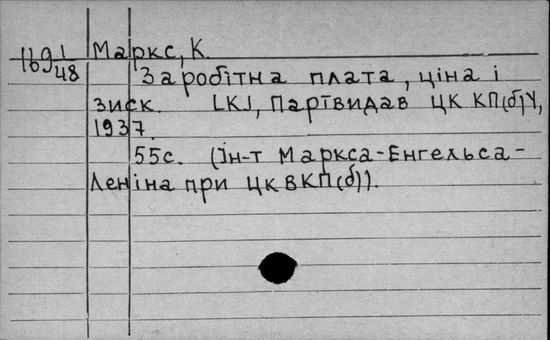 1169 1/48 Маркс, К.
Заробітна плата, ціна і
зиск. [К], Партвидав ЦК КП(б)У,
1937.
55с. (Ін-т Маркса-Енгельса-
Леніна при ЦК ВКП(б)).